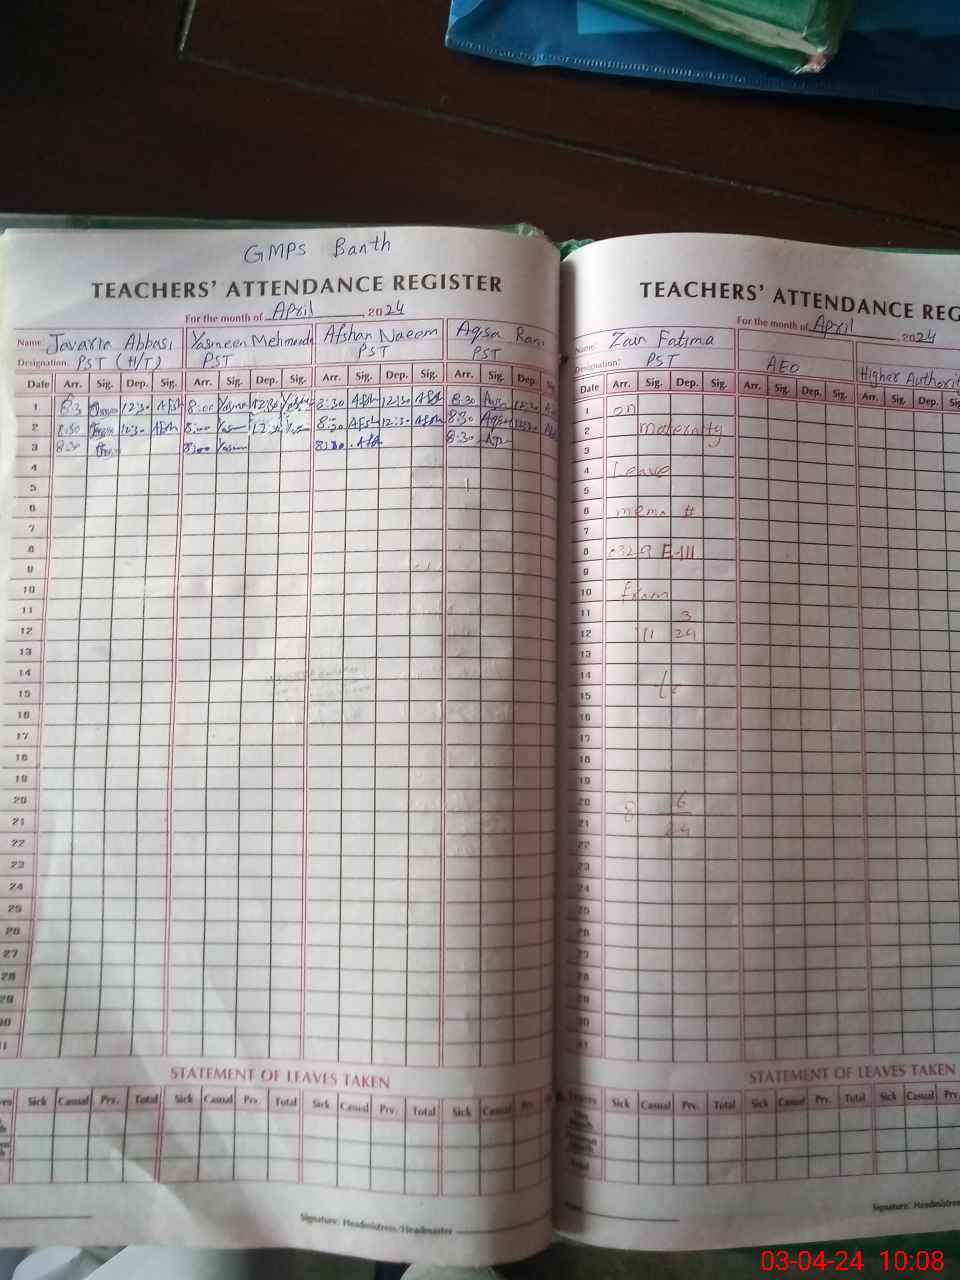 GMPS Banth
TEACHERS' ATTENDANCE REGISTER
For the month of April 2024
Name: Javaria Abbasi Yasmeen Mehmood Afshan Naeem Aqsa Rani
Designation: PST (H/T) PST PST PST
Date Arr. Sig. Dep. Sig. Arr. Sig. Dep. Sig. Arr. Sig. Dep. Sig. Arr. Sig. Dep. Sig.
1 8:30 12:30 Afsh 8:00 Yasmn 12:30 8:30 Afsh 12:30 Afsh 8:30 Aqsa 12:30
2 8:30 12:30 Afsh 8:00 Yasm 12:30 8:30 Afsh 12:30 Afsh 8:30 Aqsa 12:30
3 8:30 8:00 Yasm 8:30 Afsh 8:30 Aqsa
4
5
6
7
8
9
10
11
12
13
14
15
16
17
18
19
20
21
22
23
24
25
26
27
28
29
30
31
STATEMENT OF LEAVES TAKEN
Sick Casual Prv. Total Sick Casual Prv. Total Sick Casual Prv. Total Sick Casual Prv.
Signature: Headmistress/Headmaster
TEACHERS' ATTENDANCE REG
For the month of April 2024
Name: Zain Fatima
Designation: PST AEO Higher Authorit
Date Arr. Sig. Dep. Sig. Arr. Sig. Dep. Sig. Arr. Sig. Dep.
1 on
2 maternity
3
4 Leave
5
6 memo #
7
8 329 E-III
9
10 from
11 3
12 11 24
13
14
15 to
16
17
18
19
20 8 6
21 24
22
23
24
25
26
27
28
29
30
31
STATEMENT OF LEAVES TAKEN
Leaves Sick Casual Prv. Total Sick Casual Prv. Total Sick Casual Prv.
Total
Signature: Headmistress
03-04-24 10:08